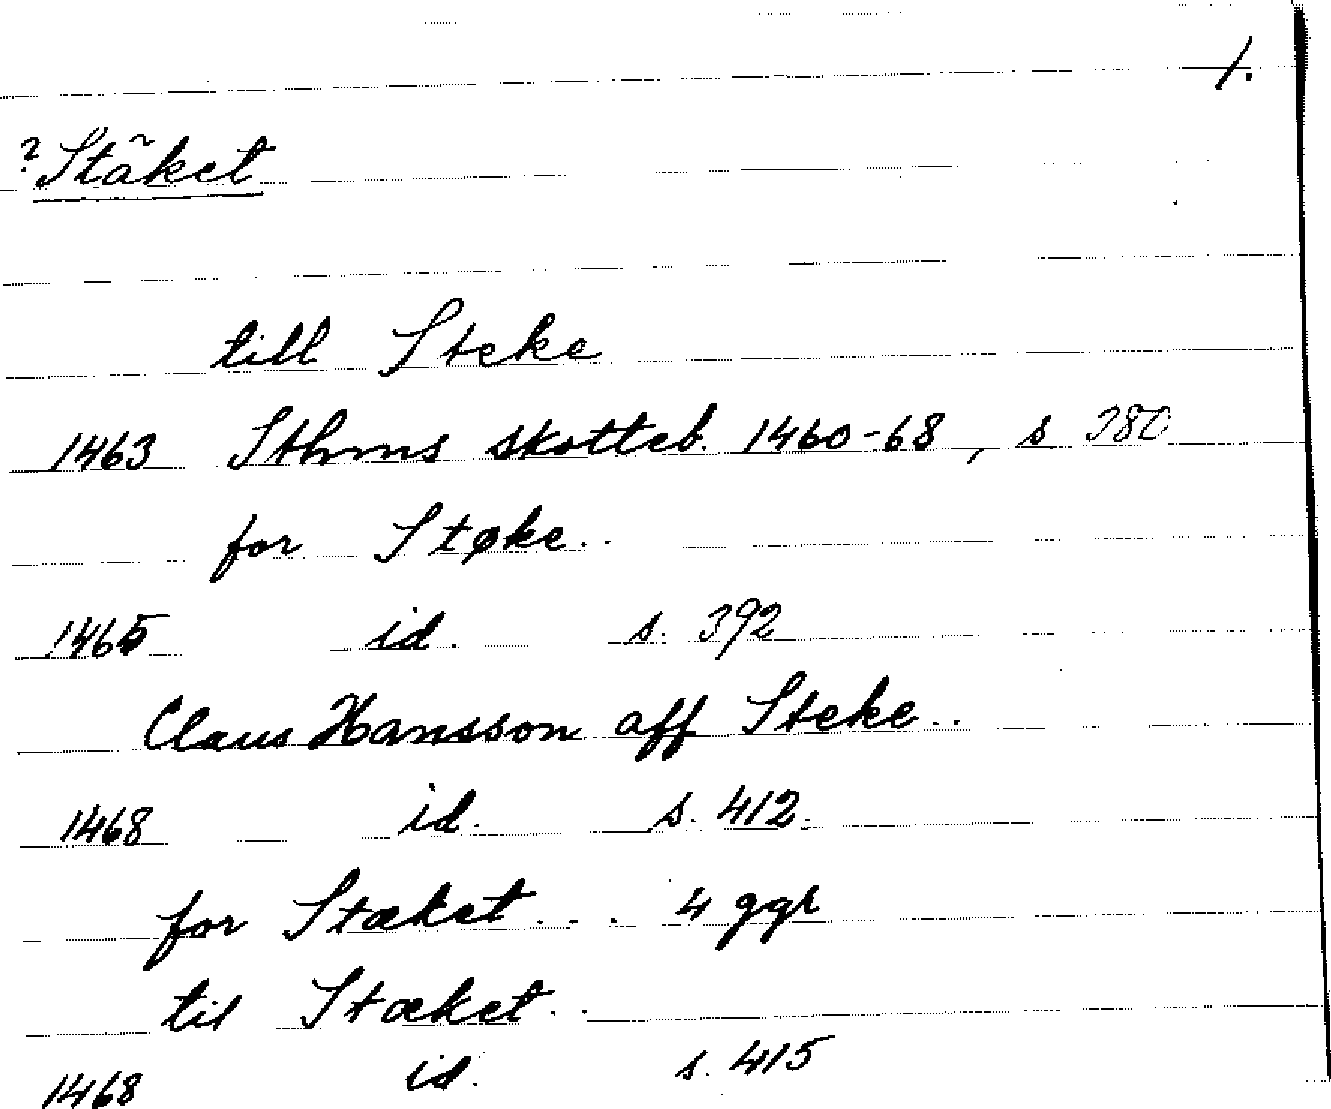 1.
? Stäket
till Steke
1463 Sthms skotteb. 1460-68, s 380
for Støke
1465 id. s. 392
Claus Hansson aff Steke
1468 id. s. 412
for Stæket 4 ggr
til Stæket
1468 id. s. 415